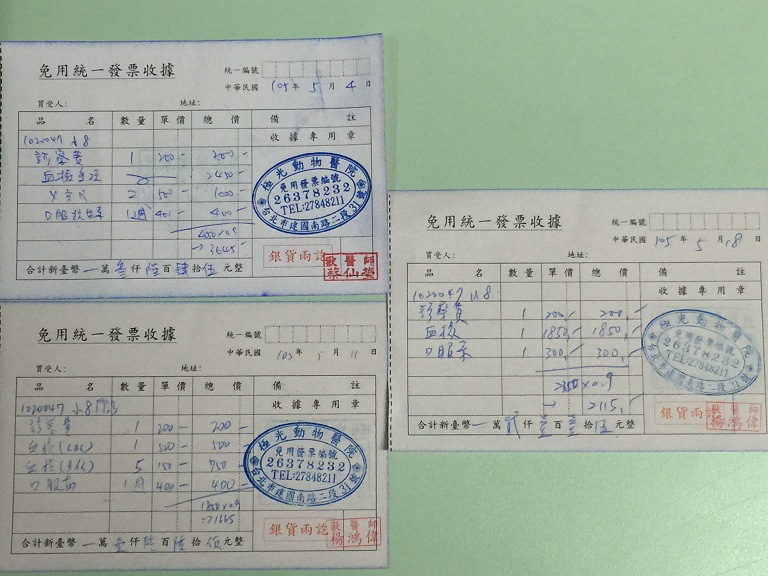 免用統一發票收據
統一編號
中華民國 105 年 5 月 4 日
買受人: 地址:
品名 數量 單價 總價 備註
1020047 小8 收據專用章
診察費 1 200 200-
2450-
X光片 2 500 1000-
400- 400-
→ 3645-
極光動物醫院
免用發票編號
26378232
TEL:27848211
台北市建國南路二段31號
銀貨兩訖
獸醫師
蔡仙瑩
合計新臺幣 一萬 叁仟 陸百 肆拾 伍元整
免用統一發票收據
統一編號
中華民國 105 年 5 月 18 日
買受人: 地址:
品名 數量 單價 總價 備註
1020047 小8 收據專用章
診察費 1 200,- 200,-
血檢 1 1850,- 1850,-
口服藥 1 300,- 300,-
2350×0.9
→ 2115,-
極光動物醫院
免用發票編號
26378232
TEL:27848211
台北市建國南路二段31號
銀貨兩訖
獸醫師
楊鴻偉
合計新臺幣 一萬 貳仟 壹百 壹拾 伍元整
免用統一發票收據
統一編號
中華民國 105 年 5 月 11 日
買受人: 地址:
品名 數量 單價 總價 備註
1020047 小8 收據專用章
診察費 1 200- 200-
血檢(CBC) 1 500- 500-
5 150- 750-
400- 400-
1850×0.9
→1665
極光動物醫院
免用發票編號
26378232
TEL:27848211
台北市建國南路二段31號
銀貨兩訖
獸醫師
楊鴻偉
合計新臺幣 一萬 壹仟 陸百 陸拾 伍元整